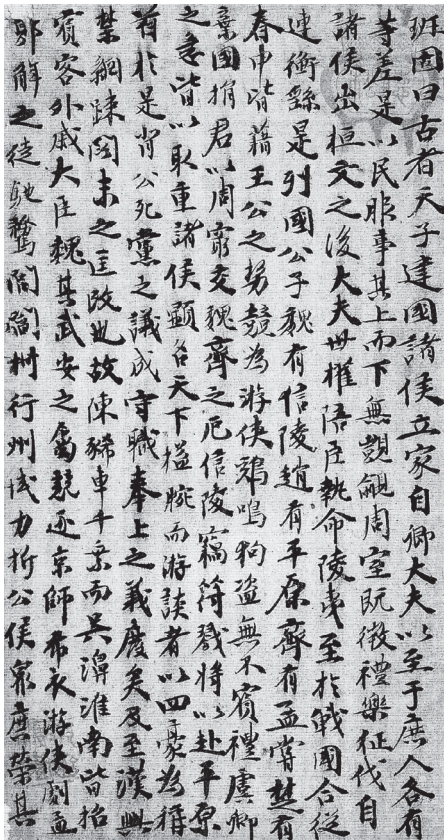 班固曰古者天子建國諸侯立家自卿大夫以至于庶人各有
等差是以民服事其上而下無覬覦周室既微禮樂征伐自
諸侯出桓文之後大夫世權陪臣執命陵夷至於戰國合從
連衡繇是列國公子魏有信陵趙有平原齊有孟嘗楚有
春申皆藉王公之勢競為游俠鷄鳴狗盜無不賓禮虞卿
棄國捐君以周窮交魏齊之厄信陵竊符戮將以赴平原
之急皆以取重諸侯顯名天下搤腕而游談者以四豪為稱
首於是背公死黨之議成守職奉上之義廢矣及至漢興
禁網疎闊未之匡改也故陳豨車千乘而吳濞淮南皆招
賓客外戚大臣魏其武安之屬競逐京師布衣游俠劇孟
郭解之徒馳騖閭閻權行州域力折公侯衆庶榮其